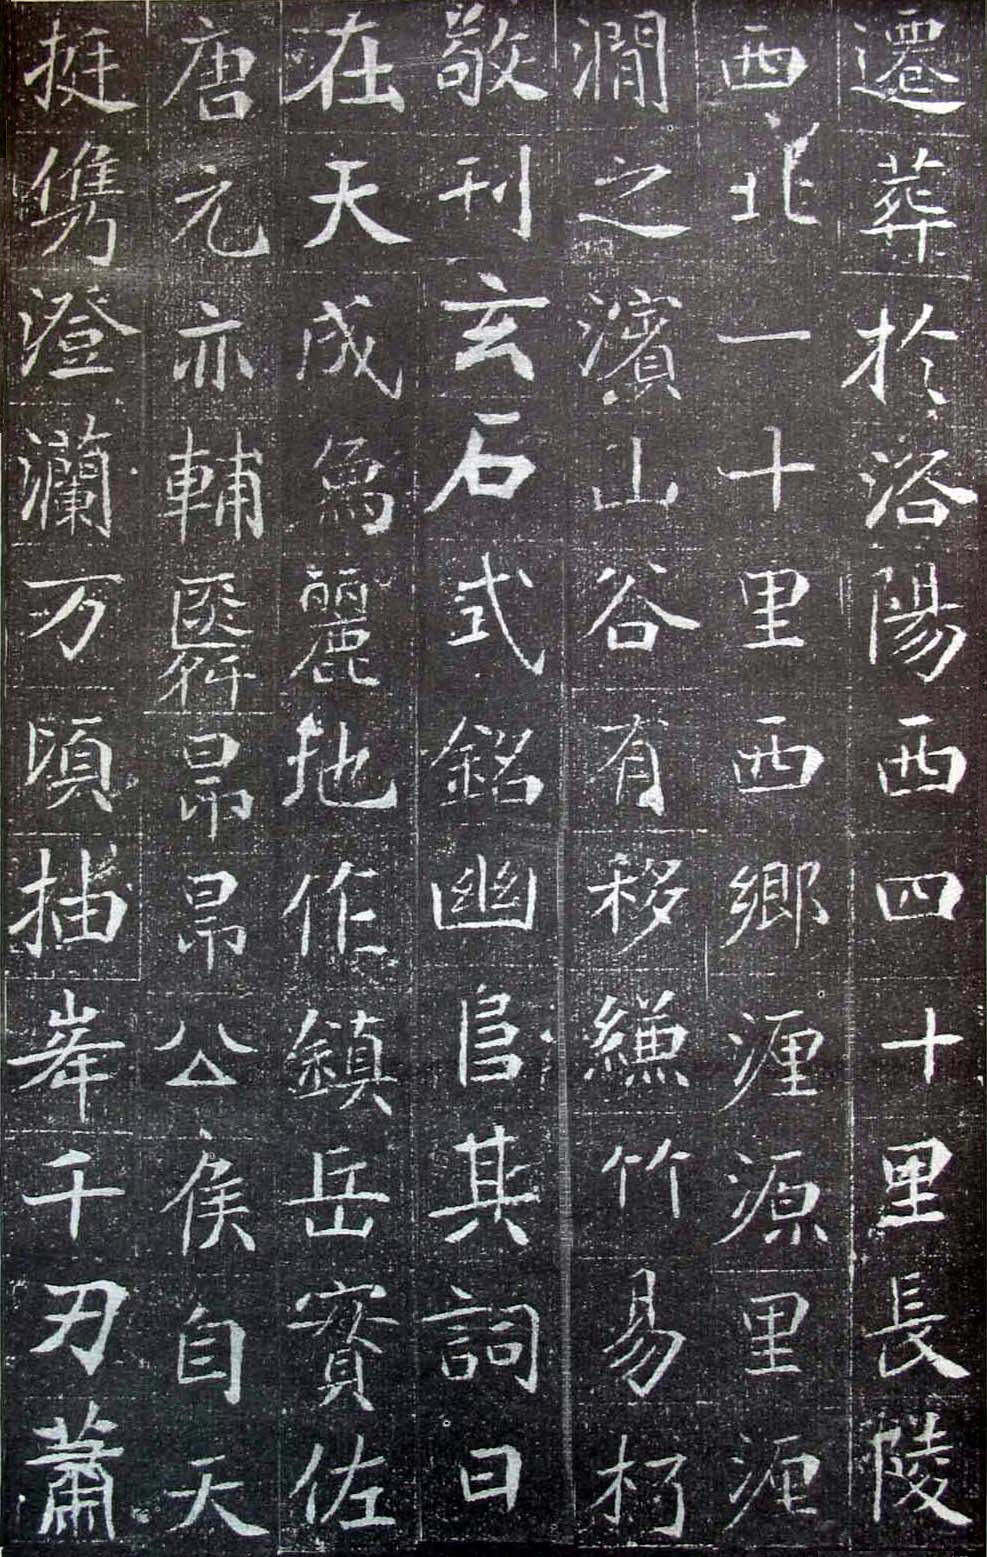 遷葬於洛陽西四十里長陵
西北一十里西鄉瀍源里瀍
澗之濱山谷有移縑竹易朽
敬刊玄石式銘幽扃其詞曰
在天成象麗地作鎮岳實佐
唐元亦輔舜昂昂公侯自天
挺儁澄瀾万頃抽峯千刃蕭